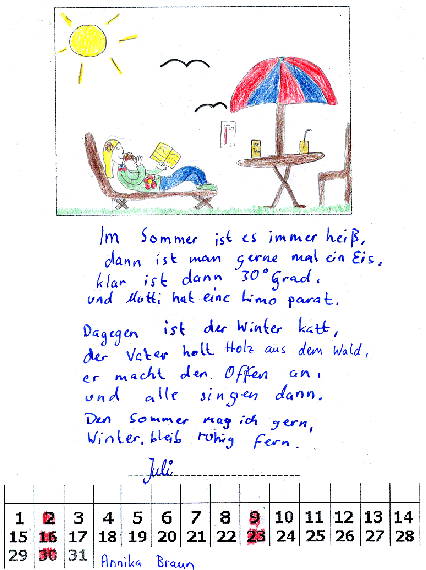 Im Sommer ist es immer heiß,
dann ist man gerne mal ein Eis,
klar ist dann 30° Grad,
und Mutti hat eine Limo parat.
Dagegen ist der Winter kalt,
der Vater holt Holz aus dem Wald,
er macht den Offen an,
und alle singen dann.
Den Sommer mag ich gern,
Winter, bleib ruhig fern.
Juli
1 2 3 4 5 6 7 8 9 10 11 12 13 14
15 16 17 18 19 20 21 22 23 24 25 26 27 28
29 30 31 Annika Braun